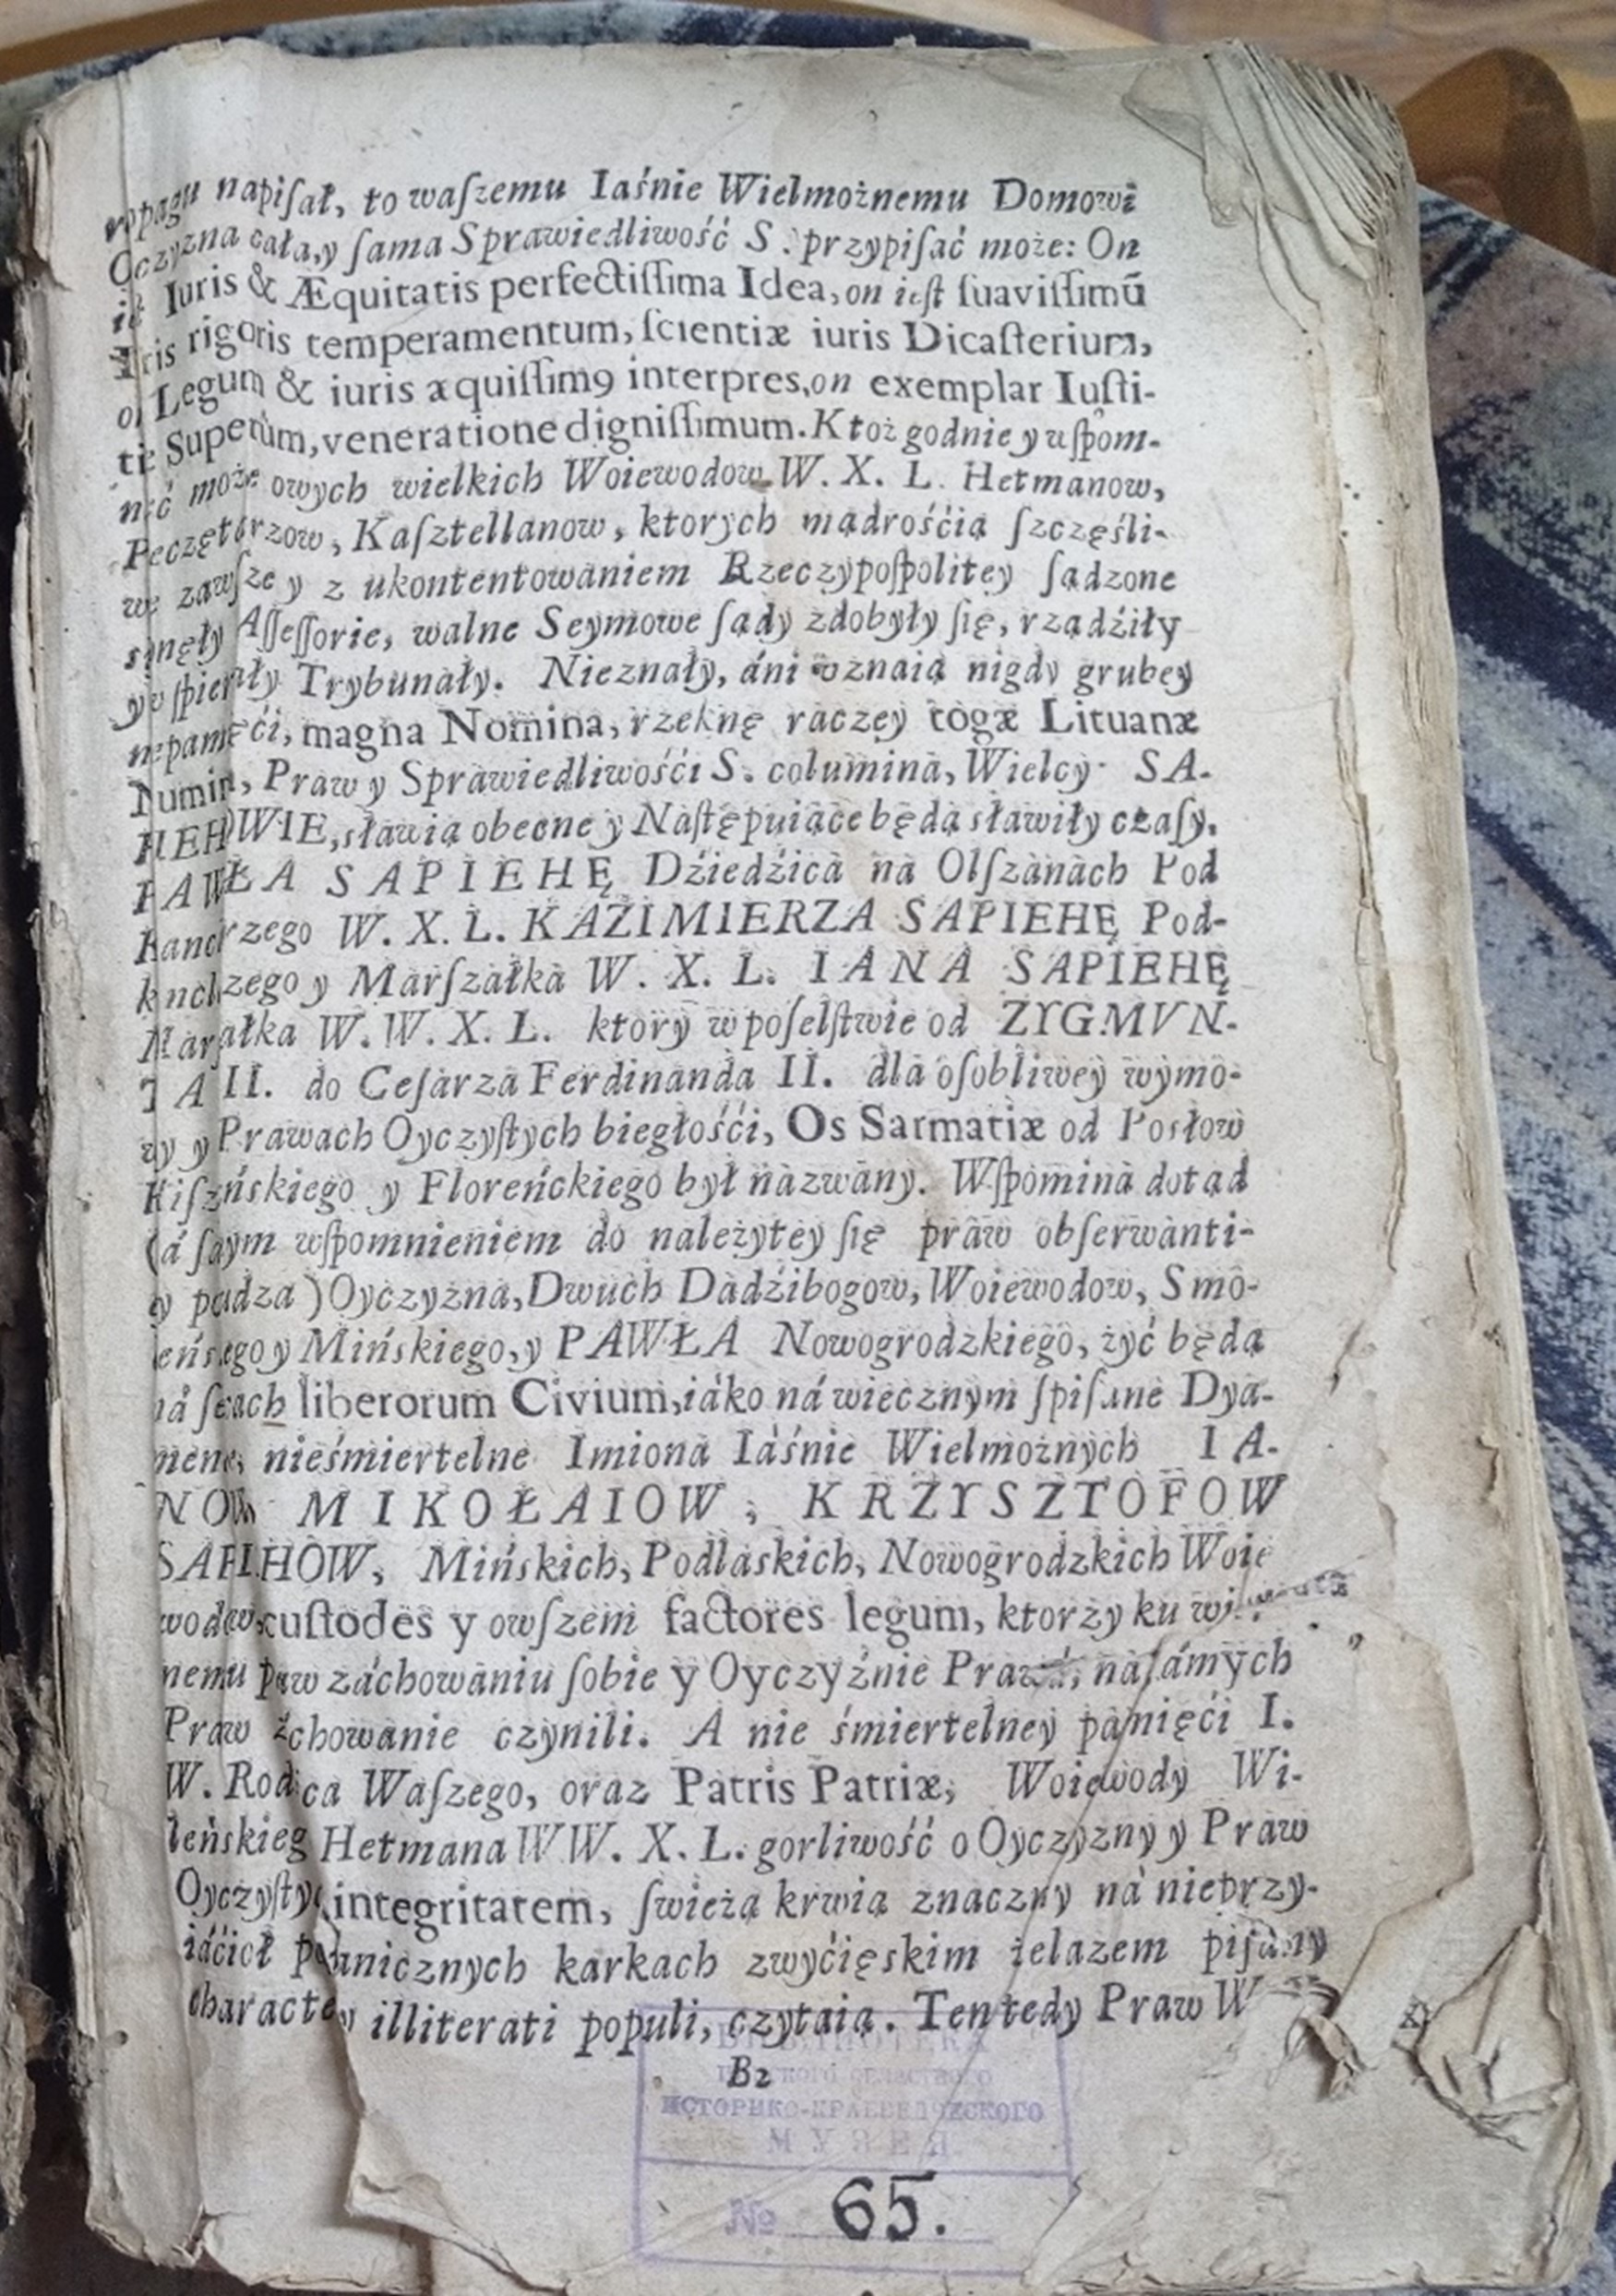 napiſał, to waſzemu Iaśnie Wielmożnemu Domowi
Oczyzna cała, y ſama Sprawiedliwość S. przypiſać może: On
Iuris & Æquitatis perfectiſſima Idea, on ieſt ſuaviſſimū
rigoris temperamentum, ſcientiæ iuris Dicaſterium,
Legum & iuris æquiſſimꝰ interpres, on exemplar Iuſti-
Superûm, veneratione digniſſimum. Ktoż godnie y uſpom-
może owych wielkich Woiewodow W. X. L. Hetmanow,
Kaſztellanow, ktorych mądrośćią ſzczęśli-
zawſze y z ukontentowaniem Rzeczypoſpolitey ſądzone
Aſſeſſorie, walne Seymowe ſądy zdobyły ſię, rządźiły
Trybunały. Nieznały, áni uznaią nigdy grubey
magna Nomina, rzeknę raczey togæ Lituanæ
Praw y Sprawiedliwośći S. columina, Wielcy SA-
sławią obecne y Naſtępuiące będą sławiły czaſy.
PAWŁA SAPIEHĘ Dźiedźica na Olſzanach Pod
W. X. L. KAZIMIERZA SAPIEHĘ Pod-
y Marſzałka W. X. L. IANA SAPIEHĘ
W. W. X. L. ktory w poſelſtwie od ZYGMVN-
TA II. do Ceſarza Ferdinanda II. dla oſobliwey wymo-
y Prawach Oyczyſtych biegłośći, Os Sarmatiæ od Posłow
y Floreńckiego był nazwany. Wſpomina dotąd
wſpomnieniem do należytey ſię praw obſerwanti-
) Oyczyzna, Dwuch Dadźibogow, Woiewodow, Smo-
y Mińskiego, y PAWŁA Nowogrodzkiego, żyć będą
liberorum Civium, iáko ná wiecznym ſpiſane Dya-
nieśmiertelne Imiona Iáśnie Wielmożnych IA-
NOW MIKOŁAIOW, KRZYSZTOFOW
Mińskich, Podlaskich, Nowogrodzkich Woie
custodes y owſzem factores legum, ktorzy ku
nemu záchowaniu ſobie y Oyczyźnie ná ſámych
Praw czynili. A nie śmiertelney pamięći I.
W. Waſzego, oraz Patris Patriæ, Woiewody Wi-
Hetmana W W. X. L. gorliwość o Oyczyzny y Praw
integritatem, ſwieżą krwią znaczny ná nieprzy-
karkach zwyćięskim żelazem piſány
illiterati populi, czytaią. Ten tedy Praw W
B2
БИБЛИОТЕКА
ИСТОРИКО-КРАЕВЕДЧЕСКОГО
МУЗЕЯ
№ 65.